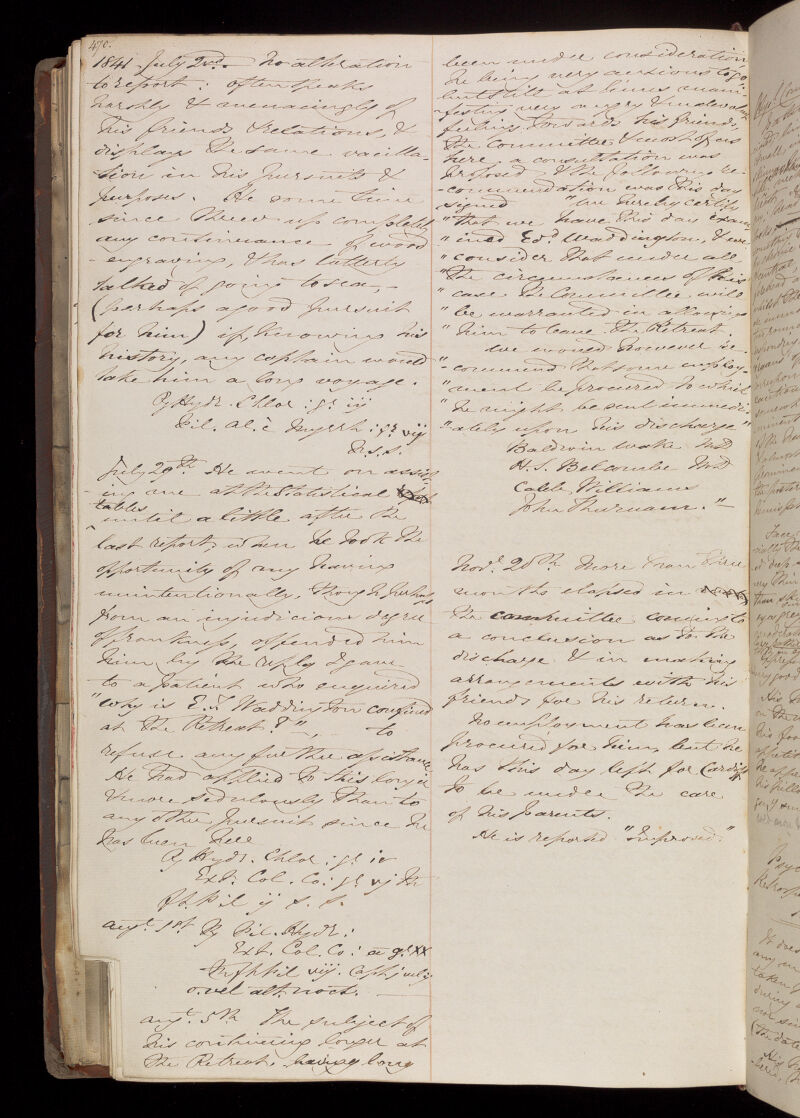 470.
1841 July 2nd. No alteration
to report: often speaks
harshly & menacingly of
his friends & relations, &
displays the same vacilla-
tion in his pursuits &
purposes. He some time
since threw up completely
any continuance of wood
-engraving, & has latterly
talked of going to sea, -
(perhaps a good pursuit
for him) if, knowing his
history, any captain would
take him a long voyage.
Rx Hydr. Chlor: gr iij
Pil. Al. c Myrrh: gr vij
h.s.s.
July 20th He went on assist-
ing me at the Statistical
tables
until a little after the
last report, when he took the
opportunity of my having
unintentionally, though perhaps
from an injudicious degree
of frankness, offended him
him by the reply I gave
to a patient who enquired
"why is Ed. Waddington confined
at the Retreat?", - to
refuse any further assistance
He had applied to this longer
& more sedulously than to
any other pursuit since he
has been here
Rx Hydr. Chlor: gr iv
Ext. Col. Co: gr vj
ft. Pil ij s. s.
Augt. 1st Rx Pil. Hydr:
Ext. Col. Co: a gr XX
ft Pil viij. Capt j vel ij
o. vel alt. noct.
Augt. 5th The subject of
his continuing longer at
the Retreat, having long
been under consideration
he being very anxious to go
but still at times mani-
-festing very angry & malevolent
feelings towards his friends,
the Committee & most of us
here, a consultation was
proposed & the following re-
-commendation was this day
signed "We hereby certify
"that we have this day exam-
"ined Edd Waddington, & we
"consider that under all
"the circumstances of his
"case the Committee will
"be warranted in allowing
"him to leave the Retreat.
We would however re-
"-commend that some employ-
"ment be procured to which
"he might be sent immedi-
"ately upon his discharge"
Baldwin Wake MD
H. S. Belcombe MD
Caleb Williams
John Thurnam."-
Novr. 20th More than three
months elapsed in
the committee coming to
a conclusion as to the
discharge & in making
arrangements with his
friends for his return.
No employment has been
procured for him, but he
has this day left for Cardiff
to be under the care
of his parents.
He is reported "Improved."